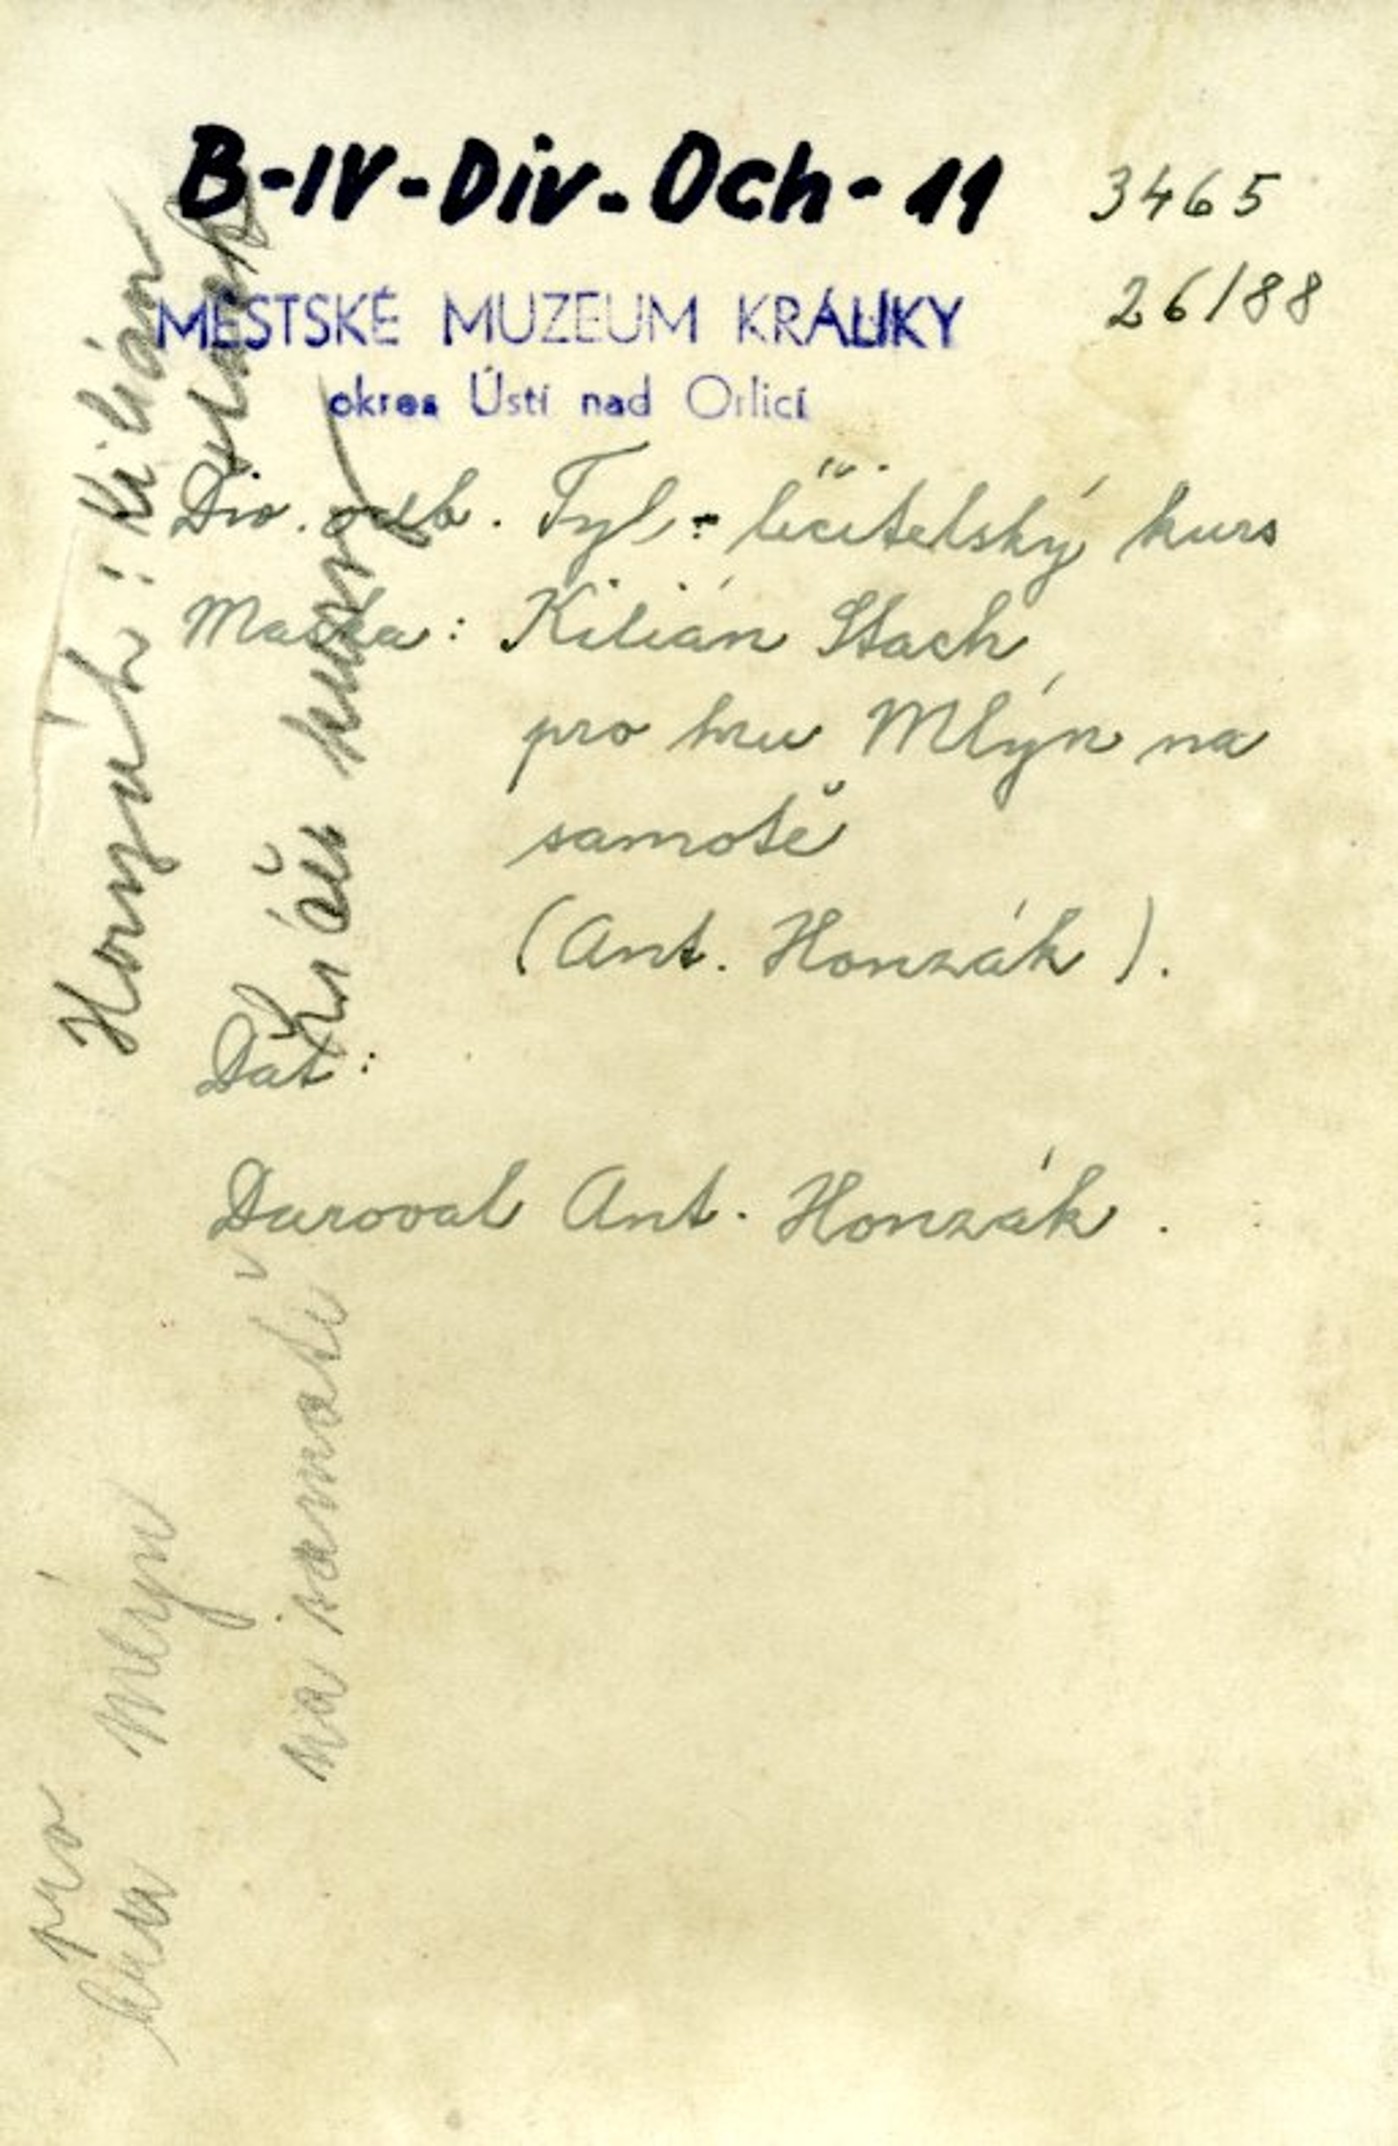 B-IV-Div-Och-11
3465
26/88
MĚSTSKÉ MUZEUM KRÁLÍKY
okres Ústí nad Orlicí
Div. odb. Tyl - líčitelský kurs
Maska: Kilián Stach
pro hru Mlýn na
samotě
(Ant. Honzák).
Dat:
Daroval Ant. Honzák.
Honzák: Kilián
kurs
pro
hru Mlýn
na samotě